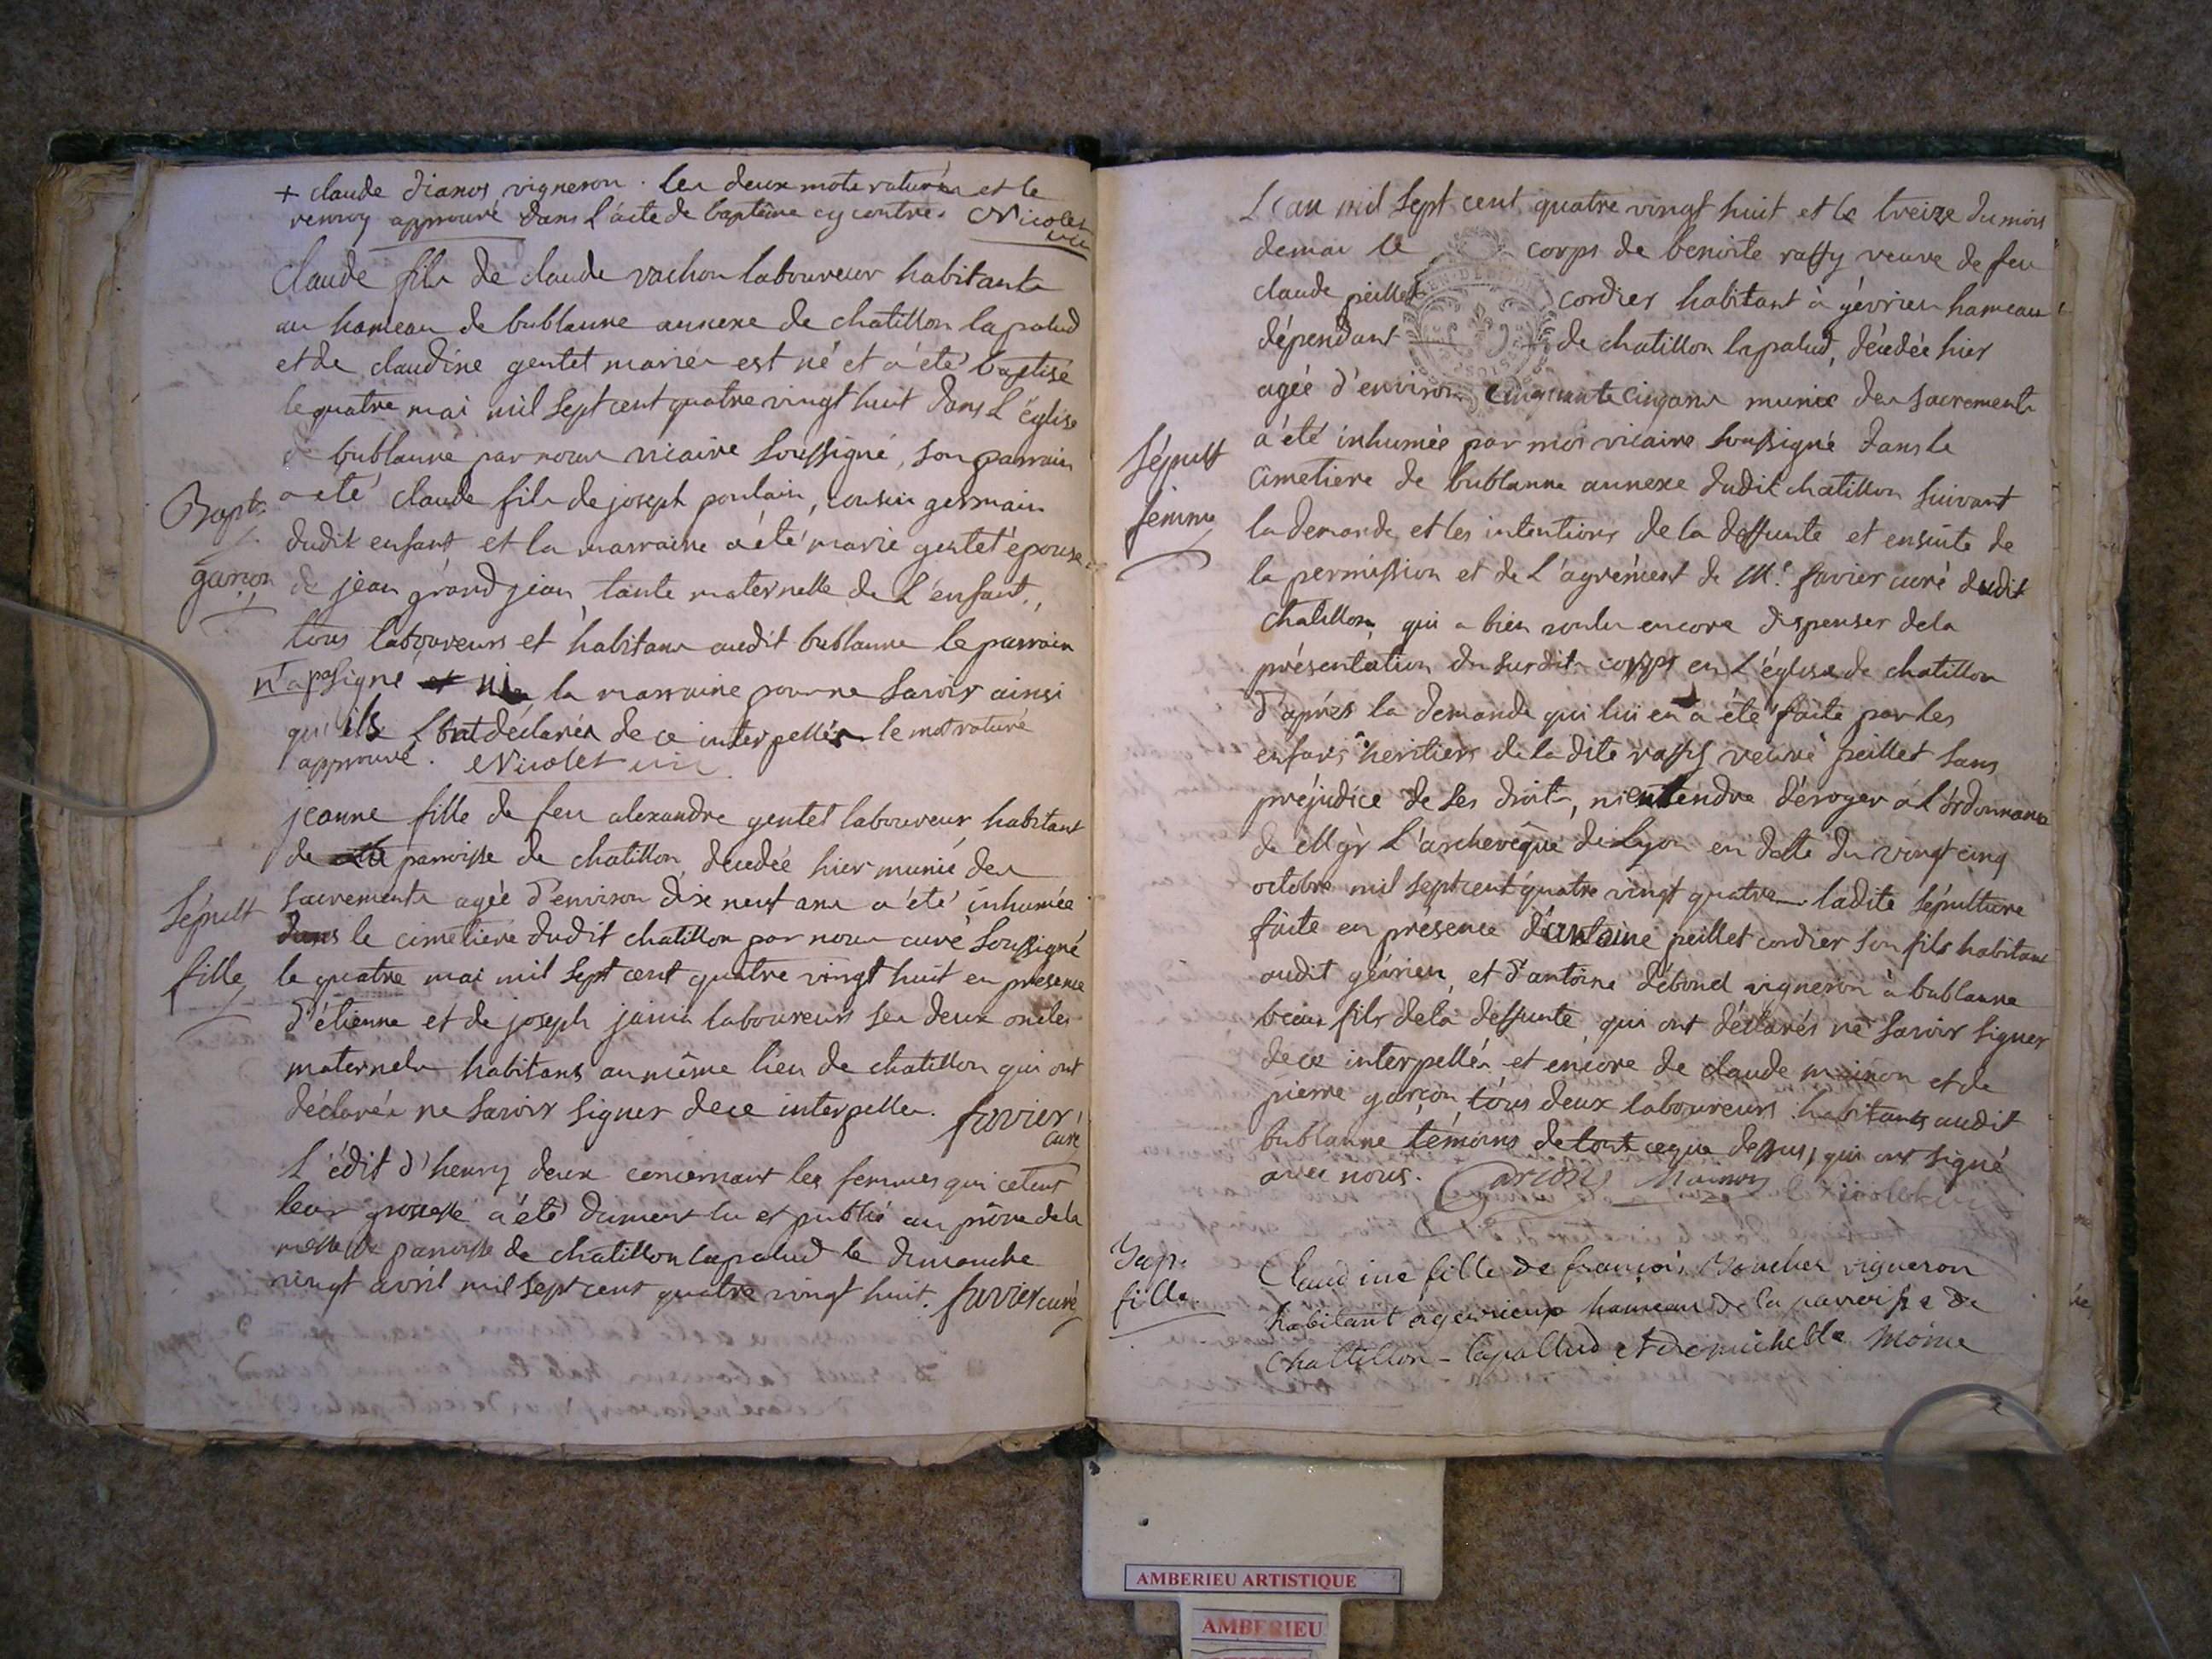 + claude dianos vigneron. les deux mots raturés et le
renvoy approuvé dans l'acte de baptême cy contre. Nicolet
vic
Claude fils de claude vachon laboureur habitants
au hameau de bublanne annexe de chatillon lapalud
et de claudine gentet mariés est né et a été baptisé
le quatre mai mil sept cent quatre vingt huit dans l'église
de bublanne par nous vicaire soussigné, son parrain
Bapt. a été claude fils de joseph poulain, cousin germain
dudit enfant et la marraine a été marie gentet épouse
garçon de jean grand jean, tante maternelle de l'enfant,
tous laboureurs et habitans audit bublanne le parrain
n'a pas signé et ni la marraine pour ne savoir ainsi
qu'ils l'ont déclarés de ce interpellés le mot raturé
approuvé. Nicolet vic
jeanne fille de feu alexandre gentet laboureur habitant
de paroisse de chatillon, decedée hier munie des
Sépult sacrements agée d'environ dix neuf ans a été inhumée
dans le cimetiere dudit chatillon par nous curé soussigné
fille le quatre mai mil sept cent quatre vingt huit en presence
d'étienne et de joseph janin laboureurs ses deux oncles
maternels habitans au même lieu de chatillon qui ont
déclarés ne savoir signer de ce interpelles. favier
curé
L'édit d'henry deux concernant les femmes qui celent
leur grossesse a été dument lu et publié au prône de la
messe de paroisse de chatillon lapalud le dimanche
vingt avril mil sept cent quatre vingt huit. favier curé
L'an mil sept cent quatre vingt huit et le treize du mois
de mai le corps de benoite raffy veuve de feu
claude peillet cordier habitant à gévrieu hameau
dépendant de chatillon lapalud, décédée hier
agée d'environ cinquante cinq ans munie des sacrements
a été inhumée par moi vicaire soussigné dans le
Sépult
cimetiere de bublanne annexe dudit chatillon suivant
femme la demande et les intentions de la deffunte et ensuite de
la permission et de l'agrément de Mr. favier curé dudit
chatillon, qui a bien voulu encore dispenser de la
présentation du susdit corps en l'église de chatillon
d'après la demande qui lui en a été faite par les
enfans heritiers de la dite raffy veuve peillet sans
préjudice de ses droits, ni entendre déroger à l'ordonnance
de Mgr l'archevêque de Lyon en datte du vingt cinq
octobre mil sept cent quatre vingt quatre ladite sépulture
faite en présence d'antoine peillet cordier son fils habitant
audit gévrieu, et d'antoine débond vigneron à bublanne
beau fils de la deffunte qui ont déclarés ne savoir signer
de ce interpellés et encore de claude moinon et de
pierre garçon tous deux laboureurs habitants audit
bublanne témoins de tout ce que dessus, qui ont signé
avec nous. Garçon Moinon Nicolet vic
Bap. Claudine fille de françois Boucher vigneron
fille habitant a gevrieux hameau de la parroisse de
Chattillon - lapallud et de michelle Moine
AMBERIEU ARTISTIQUE
AMBERIEU